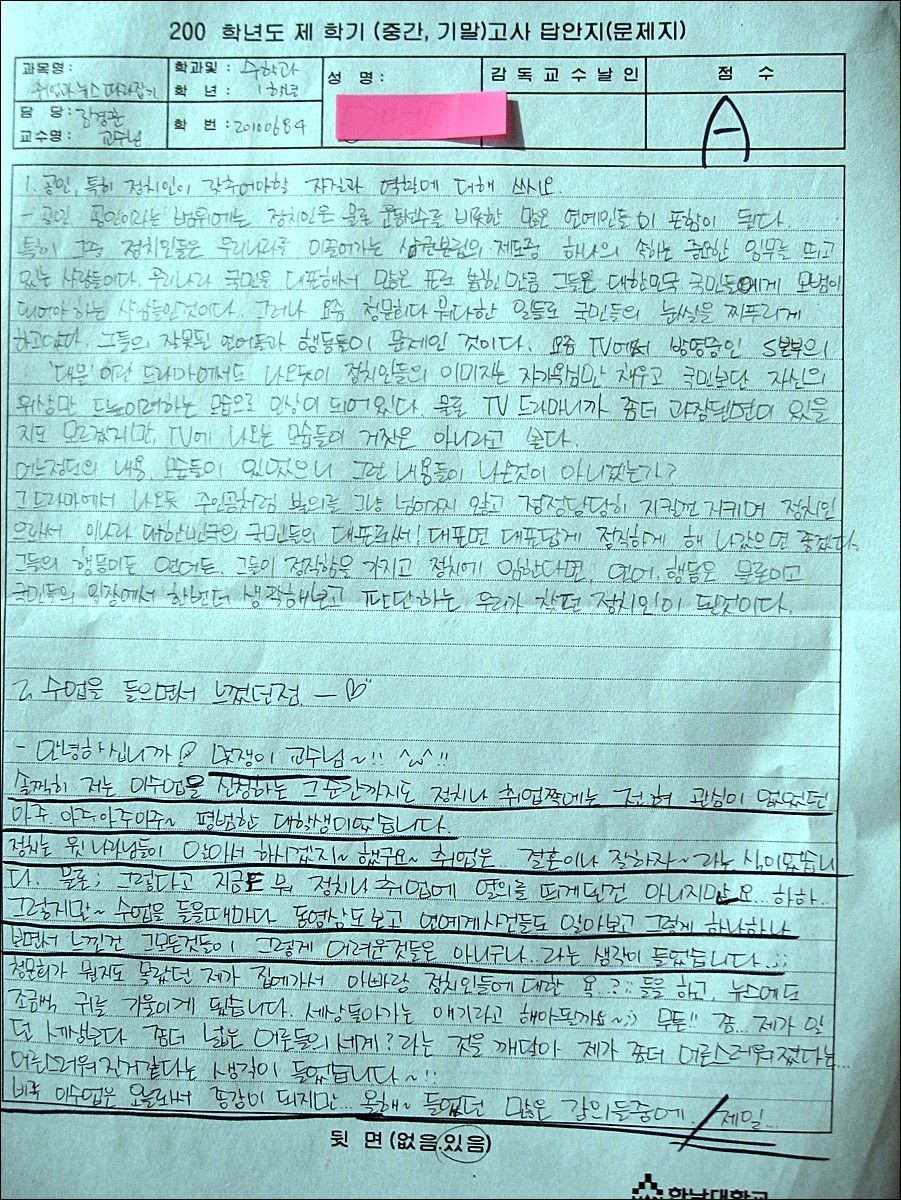 200 학년도 제 학기 (중간, 기말)고사 답안지(문제지)
과목명: 취업과 뉴스 따라잡기
학과및: 수학과
학 년: 1학년
성 명:
감독교수날인
점 수
담 당: 교수님
교수명:
학 번: 20100684
A
1. 공인, 특히 정치인이 갖추어야할 자질과 역할에 대해 쓰시오.
- 공인. 공인이라는 범위에는 정치인은 물론 운동선수를 비롯한 많은 연예인들이 포함이 된다.
특히 그중 정치인들은 우리나라를 이끌어가는 삼권분립의 제도중 하나의 속하는 중요한 임무를 띄고
있는 사람들이다. 우리나라 국민을 대표해서 많은 표로 뽑힌만큼 그들은 대한민국 국민들에게 모범이
되어야 하는 사람들인것이다. 그러나 요즘 청문회다 뭐다한 일들로 국민들의 눈쌀을 찌푸리게
하고있다. 그들의 잘못된 언어들과 행동들이 문제인 것이다. 요즘 TV에서 방영중인 S본부의
'대물' 이란 드라마에서도 나오듯이 정치인들의 이미지는 자기욕심만 채우고 국민보단 자신의
위상만 드높이려하는 모습으로 인상이 되어있다. 물론 TV 드라마니까 좀더 과장된면이 있을
지도 모르겠지만, TV에 나오는 모습들이 거짓은 아니라고 본다.
어느정도의 내용, 모습들이 있었으니 그런 내용들이 나온것이 아니겠는가?
그 드라마에서 나오듯 주인공처럼 불의를 그냥 넘어가지 않고 정정당당히 지킬건 지키며 정치인
으로서 이나라 대한민국의 국민들의 대표로서! 대표면 대표답게 정직하게 해 나갔으면 좋겠다.
그들의 행동이든 언어든, 그들이 정직함을 가지고 정치에 임한다면, 언어, 행동은 물론이고
국민들의 입장에서 한번더 생각해보고 판단하는 우리가 찾던 정치인이 될것이다.
2. 수업을 들으면서 느꼈던점 - ♡
- 안녕하십니까? 멋쟁이 교수님~!! ^^!!
솔찍히 저는 이수업을 신청하는 그 순간까지도 정치나 취업쪽에는 전혀 관심이 없었던
아주 아주아주아주~ 평범한 대학생이었습니다.
정치는 윗 나라님들이 알아서 하시겠지~ 했구요~ 취업은.. 결혼이나 잘하자~ 라는 식이었습니
다. 물론; 그렇다고 지금은 뭐 정치나 취업에 열의를 띄게된건 아니지만요... 하하.
그렇지만~ 수업을 들을때마다 동영상도보고 연예계사건들도 알아보고 그렇게 하나하나
보면서 느낀건 그모든것들이 그렇게 어려운것들은 아니구나.. 라는 생각이 들었습니다.;;
청문회가 뭔지도 몰랐던 제가 집에가서 아빠랑 정치인들에 대한 욕?;;들을 하고, 뉴스에도
조금씩 귀를 기울이게 됐습니다. 세상돌아가는 얘기라고 해야될까요~;) 무튼!! 쫌... 제가 알
던 세상보다 좀더 넓은 어른들의 세계? 라는 것을 깨달아 제가 좀더 어른스러워졌다는...
어른스러워진거같다는 생각이 들었습니다~!!
비록 이수업은 오늘로서 종강이 되지만... 올해~ 들었던 많은 강의들중에./ 제일...
뒷 면 (없음.있음)
한남대학교